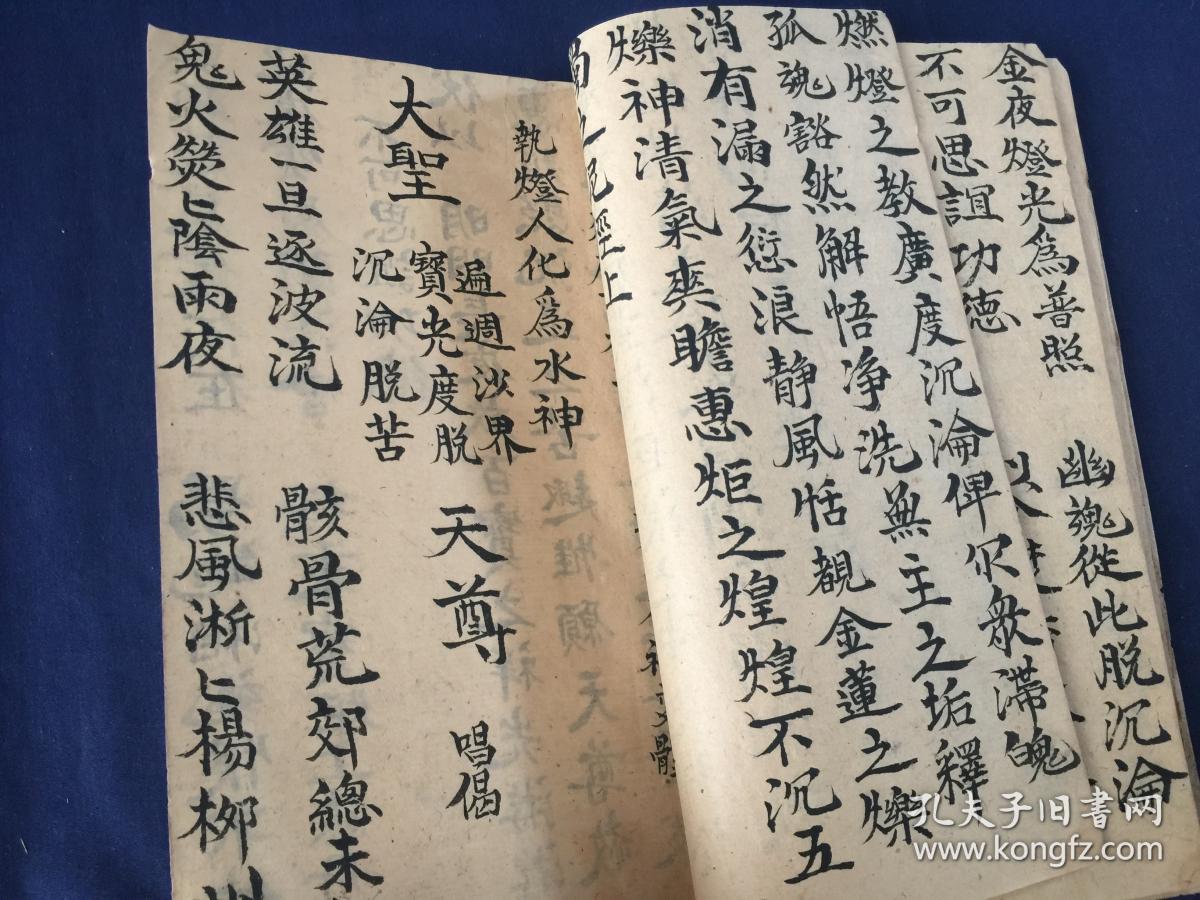 金夜燈光爲普照 幽魂從此脱沉淪
不可思誼功德
燃燈之教廣度沉淪俾尔衆滞魄
孤魂豁然解悟净洗無主之垢釋
消有漏之愆浪静風恬覩金蓮之爍
爍神清氣爽瞻惠炬之煌煌不沉五
執燈人化爲水神
大聖
遍週沙界
寶光度脱
沉淪脱苦
天尊 唱偈
英雄一旦逐波流 骸骨荒郊總未
鬼火熒〻陰雨夜 悲風淅〻楊柳
孔夫子旧书网
www.kongfz.com